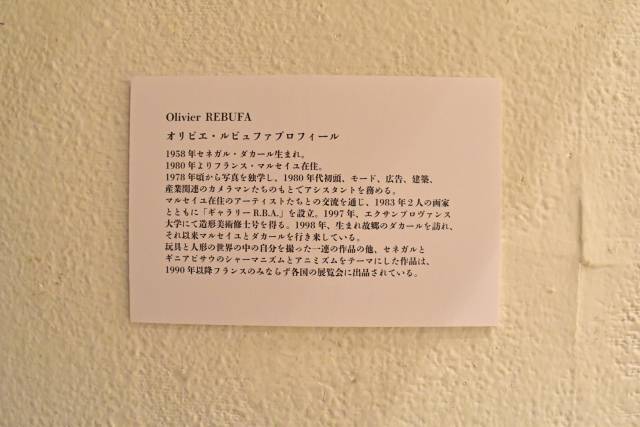 Olivier REBUFA
オリビエ・ルビュファプロフィール
1958 年セネガル・ダカール生まれ。
1980 年よりフランス・マルセイユ在住。
1978 年頃から写真を独学し、1980 年代初頭、モード、広告、建築、
産業関連のカメラマンたちのもとでアシスタントを務める。
マルセイユ在住のアーティストたちとの交流を通じ、1983 年 2 人の画家
とともに「ギャラリー R.B.A.」を設立。1997 年、エクサンプロヴァンス
大学にて造形美術修士号を得る。1998 年、生まれ故郷のダカールを訪れ、
それ以来マルセイユとダカールを行き来している。
玩具と人形の世界の中の自分を撮った一連の作品の他、セネガルと
ギニアビサウのシャーマニズムとアニミズムをテーマにした作品は、
1990 年以降フランスのみならず各国の展覧会に出品されている。